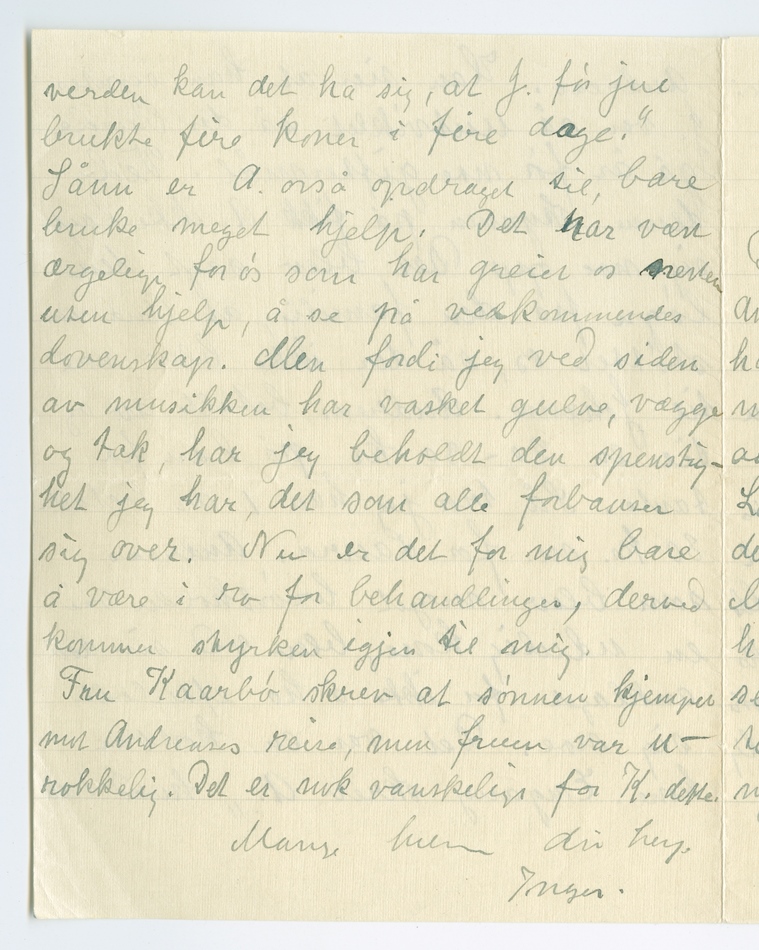 verden kan det ha sig, at J. för jul
brukte fire koner i fire dage."
Sånn er A. også opdraget til, bare
bruke meget hjelp. Det har vært
ærgelige for ós som har greiet os nesten
uten hjelp, å se på vedkommendes
dovenskap. Men fordi jeg ved siden
av musikken har vasket gulve, vægge
og tak, har jeg beholdt den spenstig-
het jeg har, det som alle forbauser
sig over. Nu er det for mig bare
å være i ro for behandlingen, derved
kommer styrken igjen til mig.
Fru Kaarbö skrev at sönnen kjempet
mot Andreases reise, men fruen var u-
rokkelig. Det er nok vanskelige for K. dette.
Mange din
Inger.